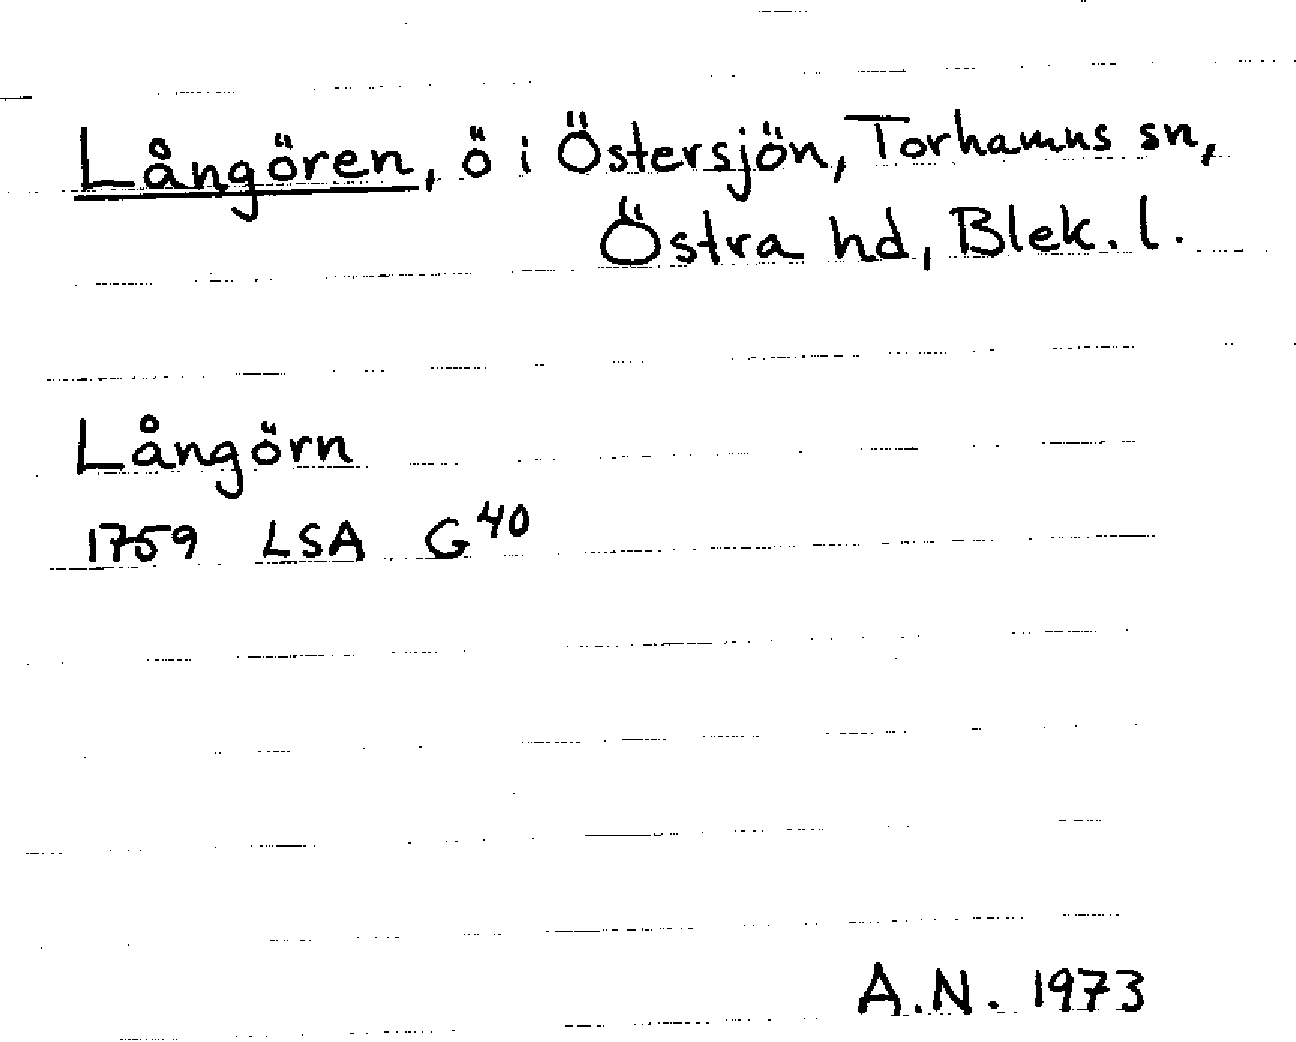 Långören, ö i Östersjön, Torhamns sn,
Östra hd, Blek. l.
Långörn
1759 LSA G 40
A.N. 1973